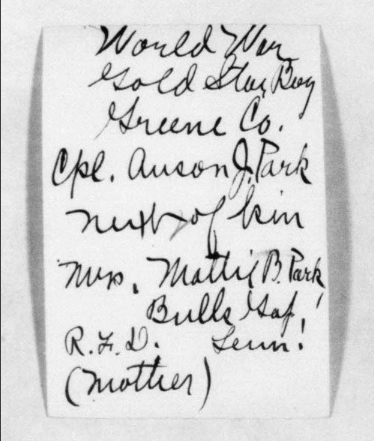 World War
Gold Star Boy
Greene Co.
Cpl. Anson J. Park
next of kin
Mrs. Mattie B. Park
Bulls Gap,
R.F.D. Tenn.
(Mother)